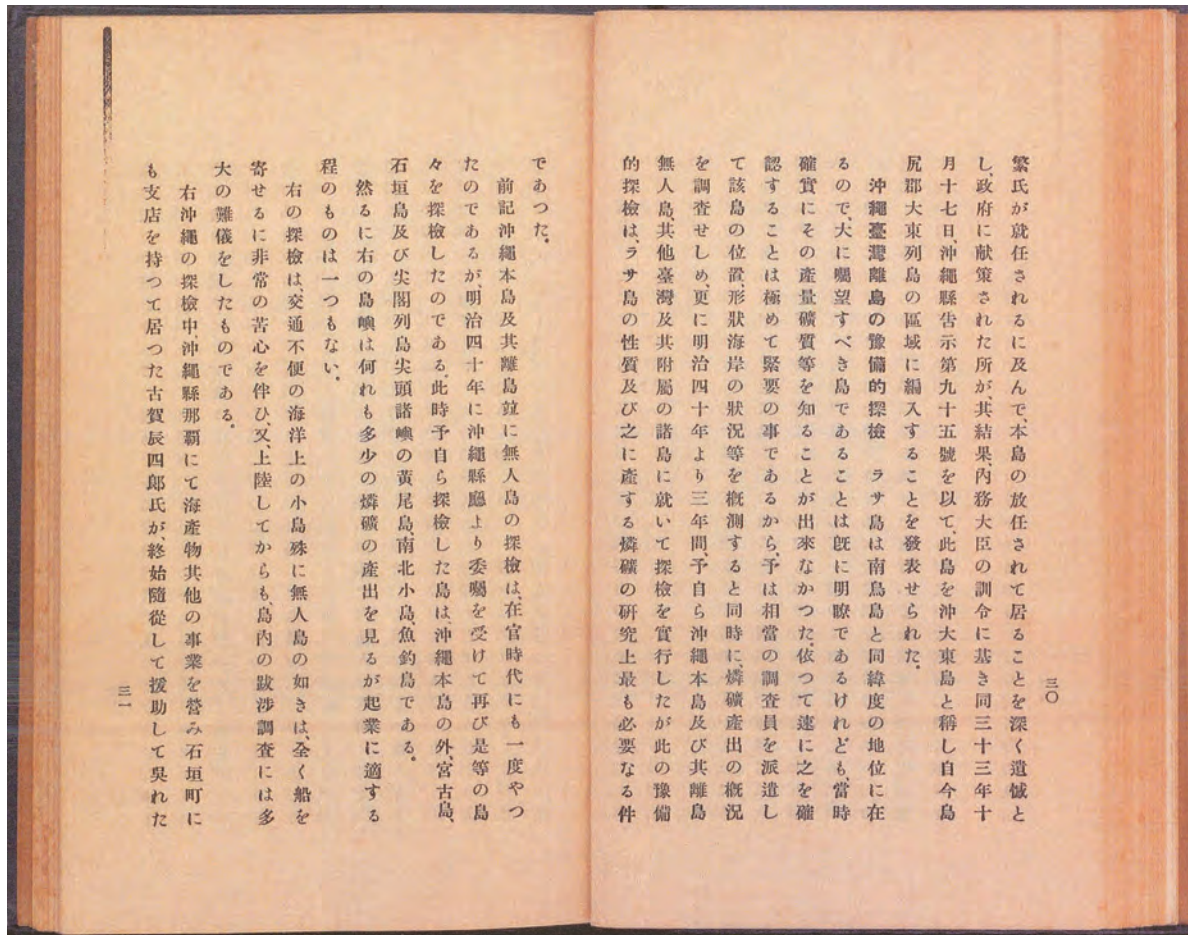 三〇
繁氏が就任されるに及んで、本島の放任されて居ることを深く遺憾と
し、政府に献策された所が、其結果、內務大臣の訓令に基き同三十三年十
月十七日、沖繩縣告示第九十五號を以て、此島を沖大東島と稱し自今島
尻郡大東列島の區域に編入することを發表せられた。
沖繩臺灣離島の豫備的探檢　ラサ島は南鳥島と同緯度の地位に在
るので、大に囑望すべき島であることは旣に明瞭であるけれども、當時
確實にその產量礦質等を知ることが出來なかつた、依つて速に之を確
認することは極めて緊要の事であるから、予は相當の調査員を派遣し
て該島の位置、形狀海岸の狀況等を槪測すると同時に、燐礦產出の槪況
を調査せしめ、更に明治四十年より三年間、予自ら沖繩本島及び其離島
無人島、其他臺灣及其附屬の諸島に就いて探檢を實行したが此の豫備
的探檢は、ラサ島の性質及び之に產する燐礦の硏究上最も必要なる件
であつた。
前記沖繩本島及其離島竝に無人島の探檢は、在官時代にも一度やつ
たのであるが、明治四十年に沖繩縣廳より委囑を受けて再び是等の島
々を探檢したのである。此時予自ら探檢した島は、沖繩本島の外、宮古島、
石垣島及び尖閣列島尖頭諸嶼の黃尾島、南北小島、魚釣島である。
然るに右の島嶼は何れも多少の燐礦の產出を見るが起業に適する
程のものは一つもない。
右の探檢は、交通不便の海洋上の小島殊に無人島の如きは、全く船を
寄せるに非常の苦心を伴ひ、又、上陸してからも、島內の跋涉調査には多
大の難儀をしたものである。
右沖繩の探檢中、沖繩縣那覇にて海產物其他の事業を營み石垣町に
も支店を持つて居つた古賀辰四郞氏が、終始隨從して援助して吳れた
三一